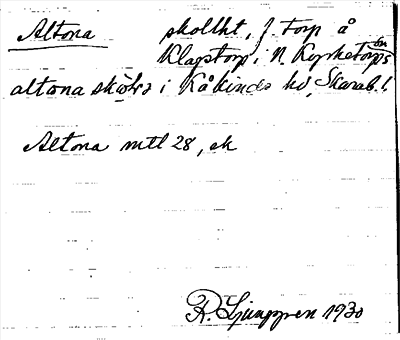 Altona skolht, f. torp å
Klapstorp i N. Kyrketorps sn
altona skola i Kåkinds hd, Skarab. l.
Altona mtl 28, ek
R. Ljunggren 1930